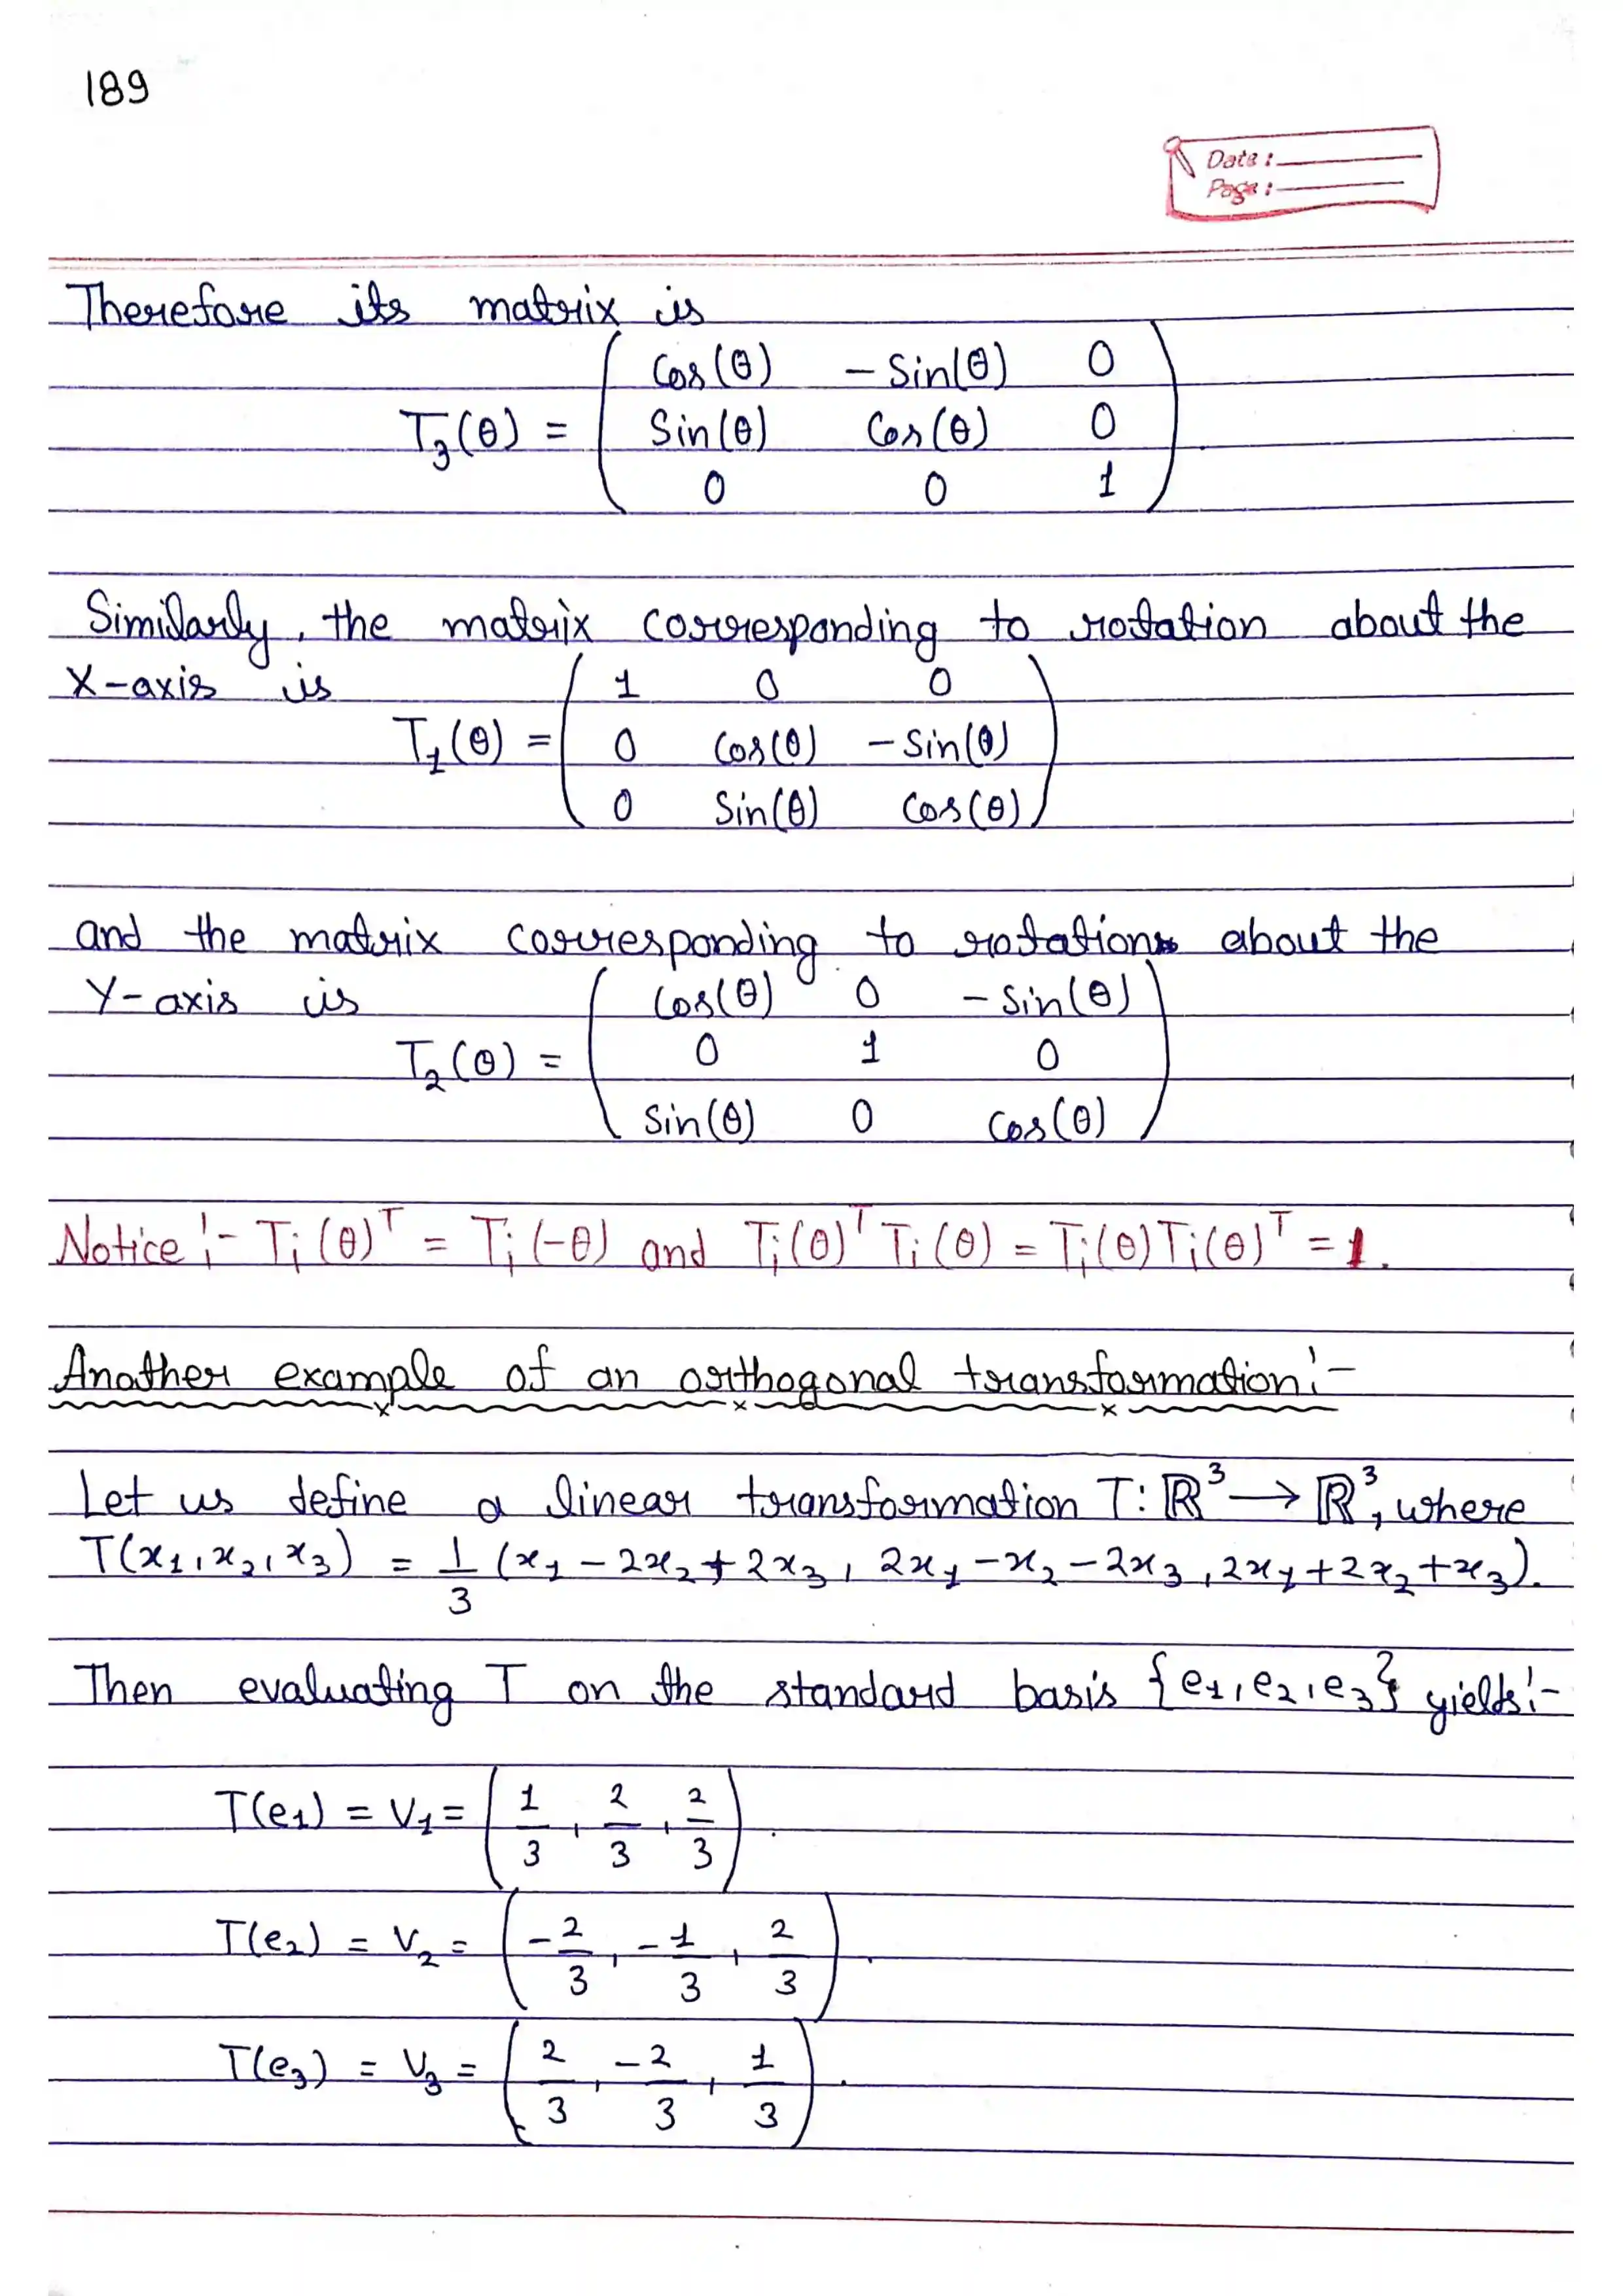 189
Date :
Page :
Therefore its matrix is
Cos(θ) -Sin(θ) 0
T₃(θ) = Sin(θ) Cos(θ) 0
0 0 1
Similarly, the matrix corresponding to rotation about the
X-axis is 1 0 0
T₁(θ) = 0 Cos(θ) -Sin(θ)
0 Sin(θ) Cos(θ)
and the matrix corresponding to rotations about the
Y-axis is Cos(θ) 0 -Sin(θ)
T₂(θ) = 0 1 0
Sin(θ) 0 Cos(θ)
Notice :- Tᵢ(θ)ᵀ = Tᵢ(-θ) and Tᵢ(θ)ᵀ Tᵢ(θ) = Tᵢ(θ)Tᵢ(θ)ᵀ = 1.
Another example of an orthogonal transformation:-
Let us define a linear transformation T: ℝ³ → ℝ³, where
T(x₁, x₂, x₃) = 1/3 (x₁ - 2x₂ + 2x₃, 2x₁ - x₂ - 2x₃, 2x₁ + 2x₂ + x₃).
Then evaluating T on the standard basis {e₁, e₂, e₃} yields:-
T(e₁) = V₁ = (1/3, 2/3, 2/3).
T(e₂) = V₂ = (-2/3, -1/3, 2/3).
T(e₃) = V₃ = (2/3, -2/3, 1/3).